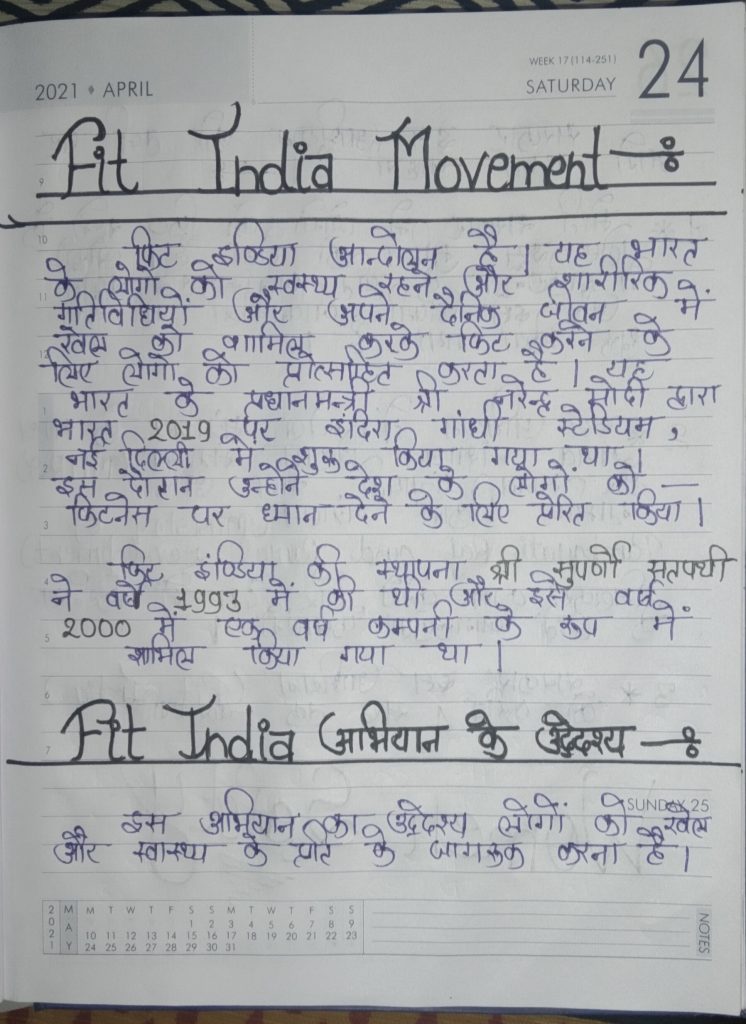 2021 • APRIL
WEEK 17 (114-251)
SATURDAY
24
Fit India Movement
फिट इण्डिया आन्दोलन है। यह भारत
के लोगों को स्वस्थ रहने और शारीरिक
गतिविधियों और अपने दैनिक जीवन में
खेल को शामिल करके फिट करने के
लिए लोगों को प्रोत्साहित करता है। यह
भारत के प्रधानमन्त्री श्री नरेन्द्र मोदी द्वारा
भारत 2019 पर इंदिरा गांधी स्टेडियम,
नई दिल्ली में शुरू किया गया था।
इस दौरान उन्होंने देश के लोगों को —
फिटनेस पर ध्यान देने के लिए प्रेरित किया।
फिट इंण्डिया की स्थापना श्री सुपर्णो सतपथी
ने वर्ष 1993 में की थी और इसे वर्ष
2000 में एक वर्ष कम्पनी के रूप में
शामिल किया गया था।
Fit India अभियान के उद्देश्य
SUNDAY 25
इस अभियान का उद्देश्य लोगों को खेल
और स्वास्थ्य के प्रति के जागरूक करना है।
2021 MAY
M T W T F S S M T W T F S S
1 2 3 4 5 6 7 8 9
10 11 12 13 14 15 16 17 18 19 20 21 22 23
24 25 26 27 28 29 30 31
NOTES